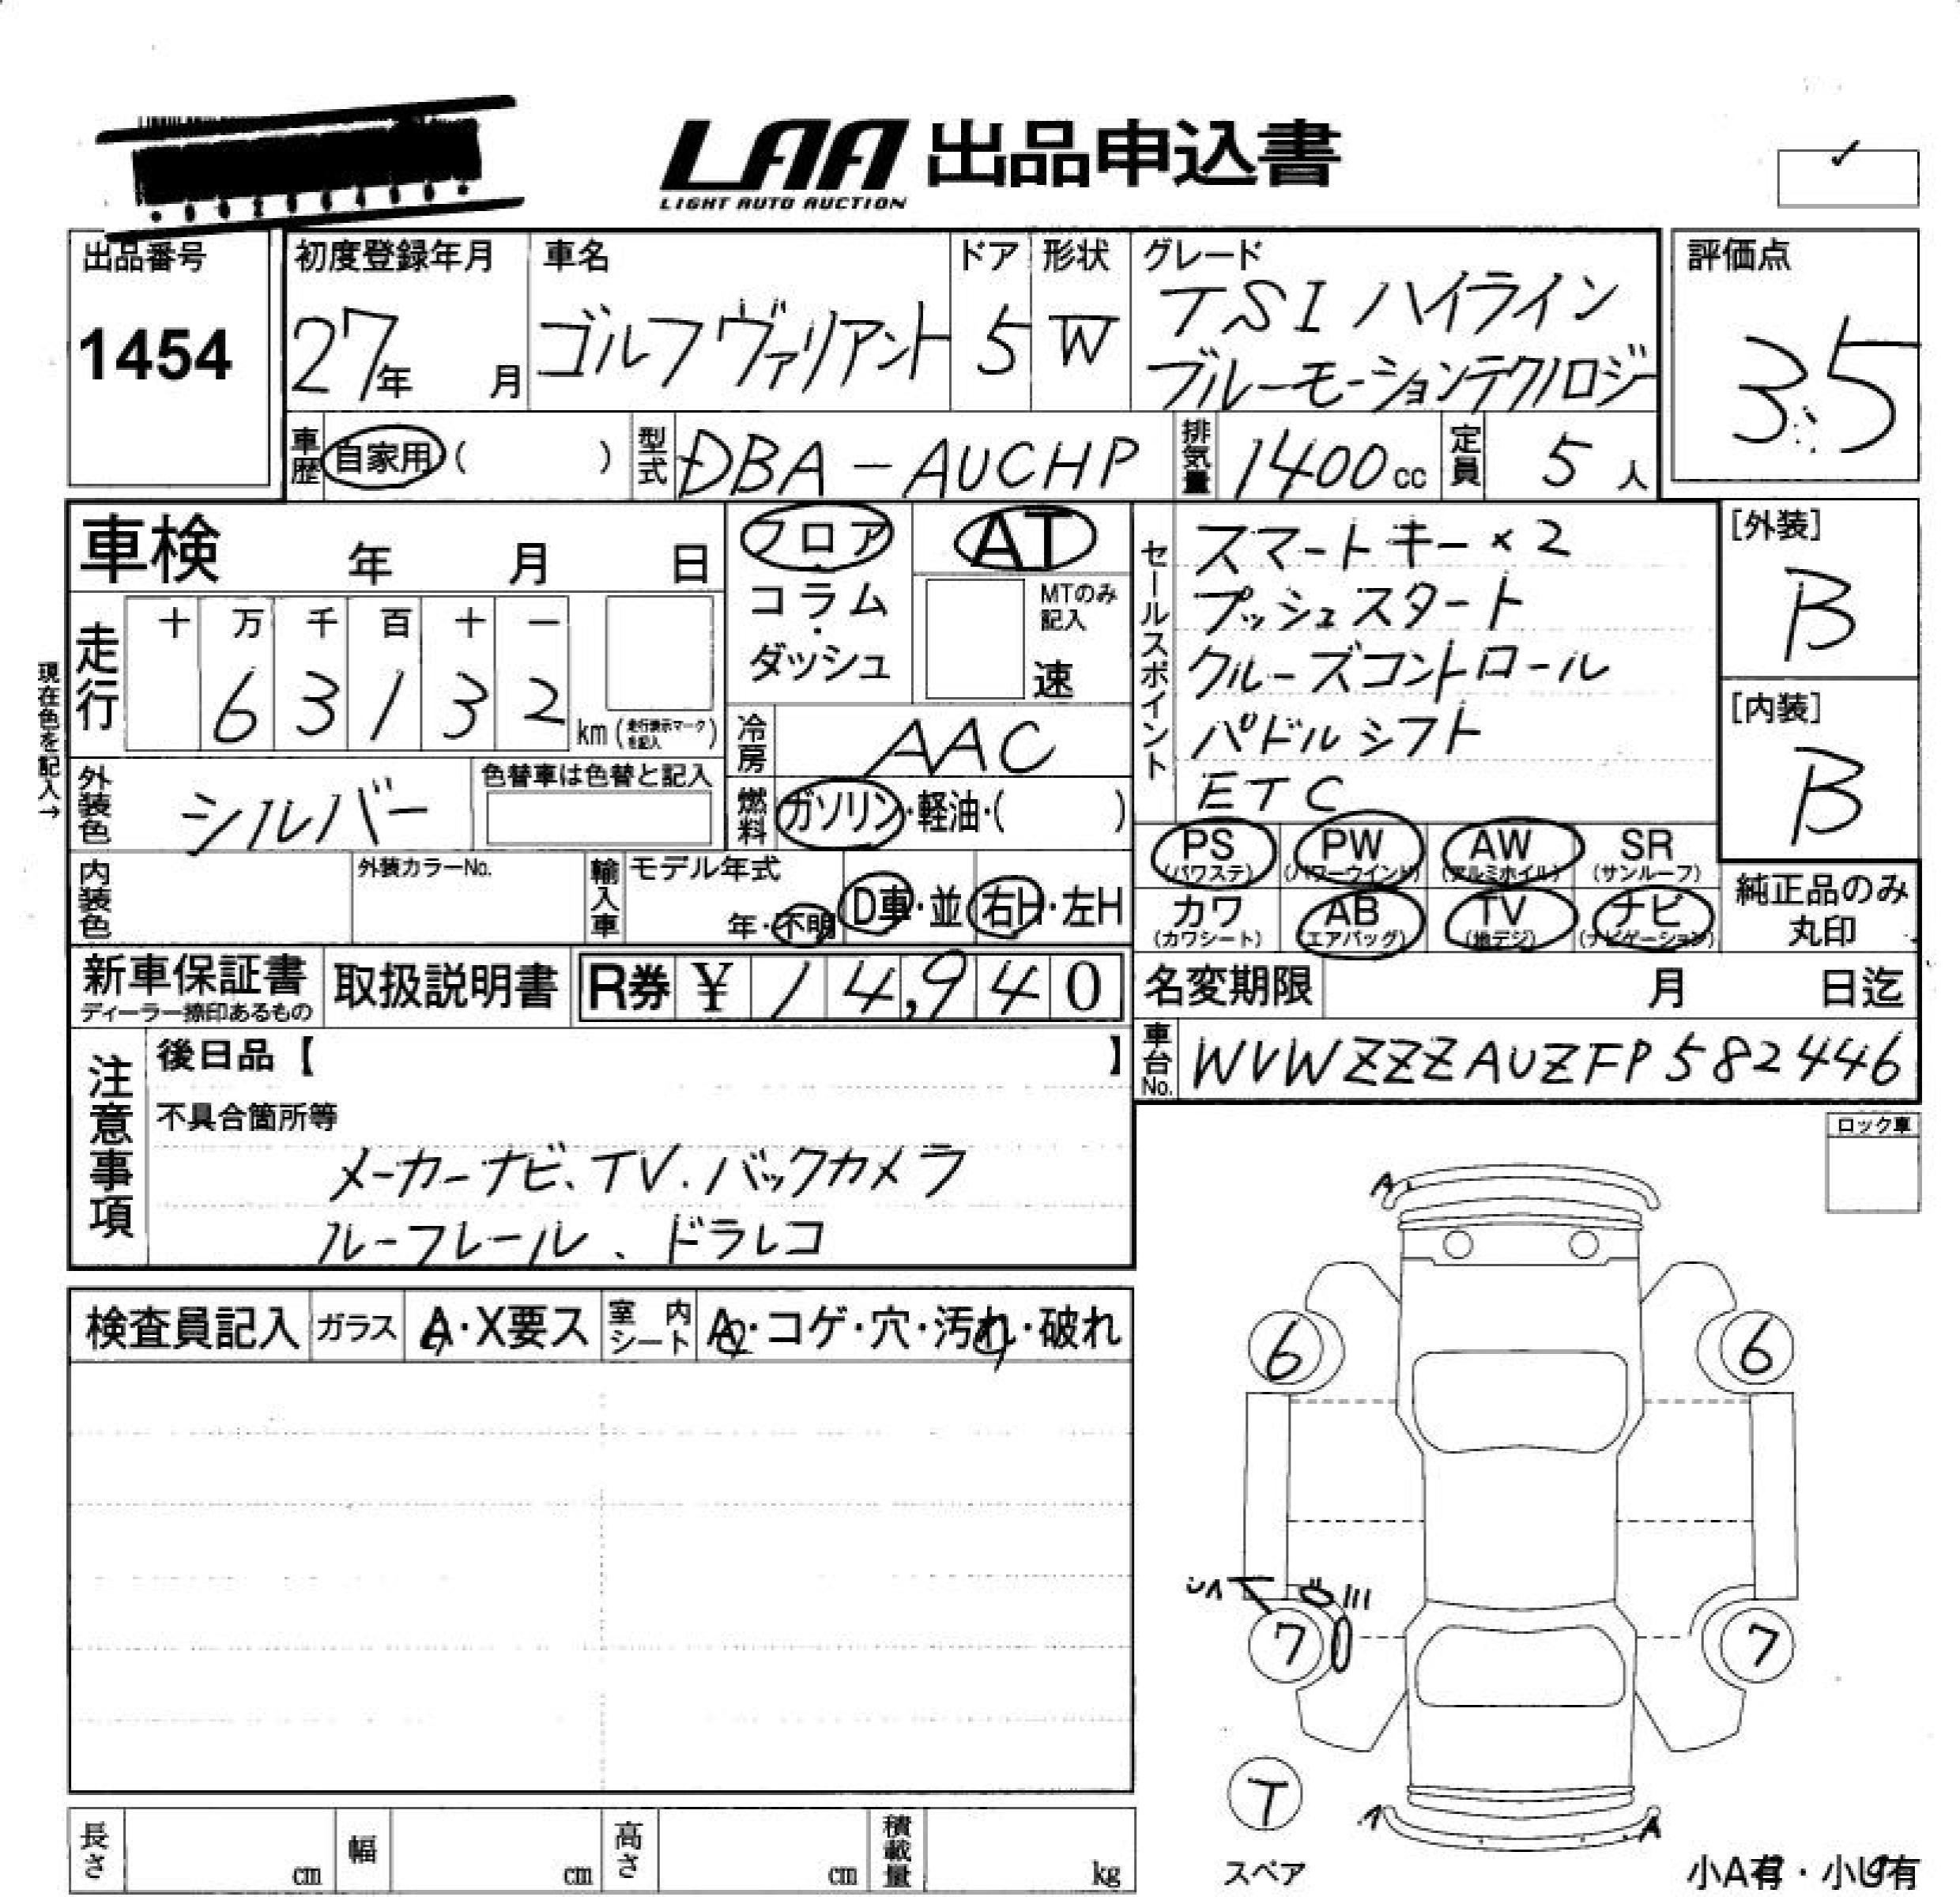 LAA 出品申込書
LIGHT AUTO AUCTION
出品番号
1454
初度登録年月
27年 月
車名
ゴルフヴァリアント
ドア
5
形状
W
グレード
TSI ハイライン
ブルーモーションテクノロジー
評価点
3.5
車歴 自家用 ( )
型式 DBA-AUCHP
排気量 1400 cc
定員 5 人
車検 年 月 日
フロア・コラム・ダッシュ
AT
MTのみ記入
速
セールスポイント
スマートキー×2
プッシュスタート
クルーズコントロール
パドルシフト
ETC
[外装]
B
[内装]
B
現在色を記入→
走行
十 万 千 百 十 一
6 3 1 3 2
km (走行表示マークを記入)
冷房 AAC
燃料 ガソリン・軽油・( )
外装色 シルバー
色替車は色替と記入
内装色
外装カラーNo.
輸入車
モデル年式
年・不明
D車・並 右H・左H
PS (パワステ)
PW (パワーウインド)
AW (アルミホイル)
SR (サンルーフ)
カワ (カワシート)
AB (エアバッグ)
TV (地デジ)
ナビ (ナビゲーション)
純正品のみ
丸印
新車保証書
ディーラー捺印あるもの
取扱説明書
R券 ¥ 14,940
名変期限 月 日迄
車台No. WVWZZZAUZFP582446
注意事項
後日品【 】
不具合箇所等
メーカーナビ、TV、バックカメラ
ルーフレール、ドラレコ
ロック車
検査員記入
ガラス A・X要ス
室内シート A・コゲ・穴・汚れ・破れ
A
6 6
7 7
T
スペア
A
A
小A有・小U有
長さ cm
幅 cm
高さ cm
積載量 kg